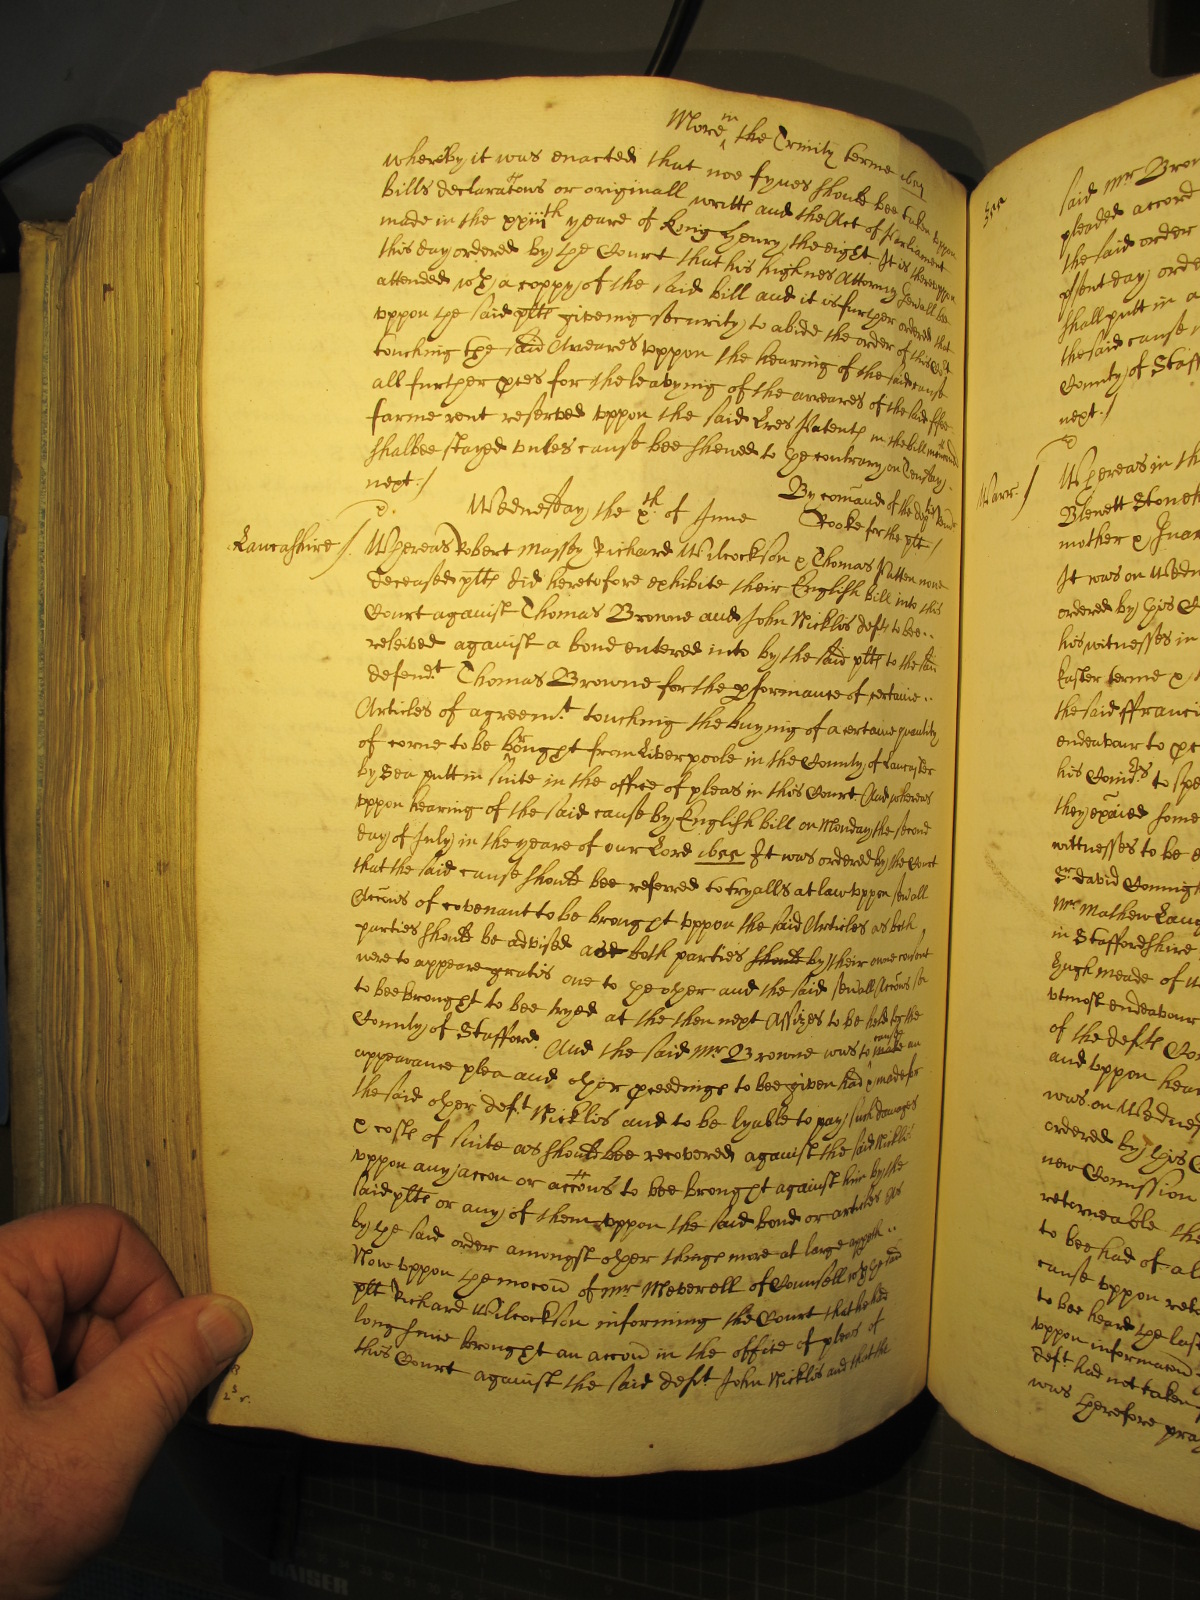 More in the Trinity terme 1657
whereby it was enacted that noe fynes should bee taken uppon
bills declaratons or originall writts and the Act of Parliament
made in the xxiiith yeare of King Henry the eight. It is thereuppon
this day ordered by the Court that his highnes Attorny Genall bee
attended wth a coppy of the said bill and it is further ordered that
uppon the said plts giveing security to abide the order of this Cort
touching the said Arreares uppon the hearing of the said cause
all further pces for the leavying of the arreares of the said ffee
farme rent reserved uppon the said Lres Patents in the bill mentioned
shalbee stayed unles cause bee shewed to the contrary on Tewsday
next./
By comaund of the
Wednesday the xth. of June
Cooke for the plt./
Lancashire/. Whereas Robert Massey Richard Wilcockson & Thomas Patten now
deceased plts did heretofore exhibite their English bill into this
Court against Thomas Browne and John Nicklis defts to bee
releived against a bond entered into by the said plts to the said
defendt Thomas Browne for the pformance of certaine
Articles of agreemt. touching the buying of a certaine quantity
of corne to be brought from Liverpoole in the County of Lancaster
by Sea putt in suite in the office of pleas in this Court. And whereas
uppon hearing of the said cause by English bill on Monday the second
day of July in the yeare of our Lord 1655 It was ordered by the Court
that the said cause should bee referred to tryalls at law uppon sevall
Accons of covenant to be brought uppon the said Articles as both
parties should be advised and both parties should by their owne consent
were to appeare gratis one to the other and the said sevall Accons soe
to bee brought to bee tryed at the then next Assizes to be held for the
County of Stafford. And the said Mr Browne was to cause make an
appearance plea and other pceedings to bee given had & made for
the said other deft. Nicklis and to be lyable to pay such damages
& costs of suite as should bee recovered against the said Nicklis
uppon any accon or accons to bee brought against him by the
said plts or any of them uppon the said bond or articles as
by the said order amongst other things more at large appth
Now uppon the mocon of Mr Meverell of Counsell wth the said
plt Richard Wilcockson informing the Court that he had
long since brought an accon in the office of pleas of
this Court against the said deft. John Nicklis and that the
said Mr Brow
pleaded accord
the said order
psent day orde
shall putt in a
the said cause
County of Staff
next./
Warr:/ Whereas in th
mother &
It was on Wedn
ordered by this C
his witnesses in
Easter terme &
the said ffranci
endeavour to
they exaied some
wittnesses to be e
Sr david Conning
Mr Mathew
in Staffordshire
Hugh meade of
utmost endeavour
of the defts Co
and uppon hear
was on Wednes
ordered by this C
new Comission
retorneable the
to bee had of al
cause uppon reto
to bee heard the las
uppon informacon
deft. had not taken
was therefore pra
KAISER